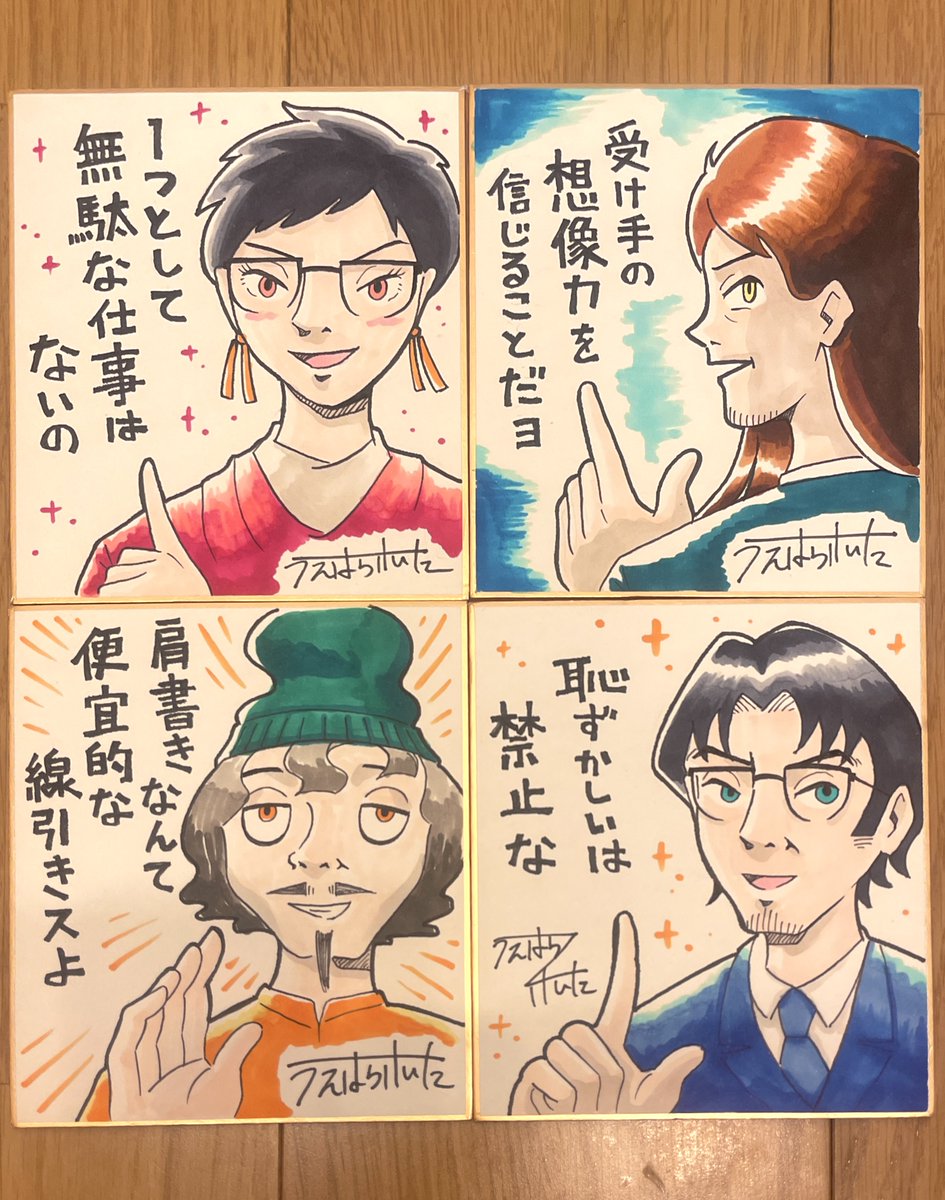 1つとして
無駄な仕事は
ないの
うえはらけいた
受け手の
想像力を
信じることだヨ
うえはらけいた
肩書きなんて
便宜的な
線引きスよ
うえはらけいた
恥ずかしいは
禁止な
うえはら
けいた